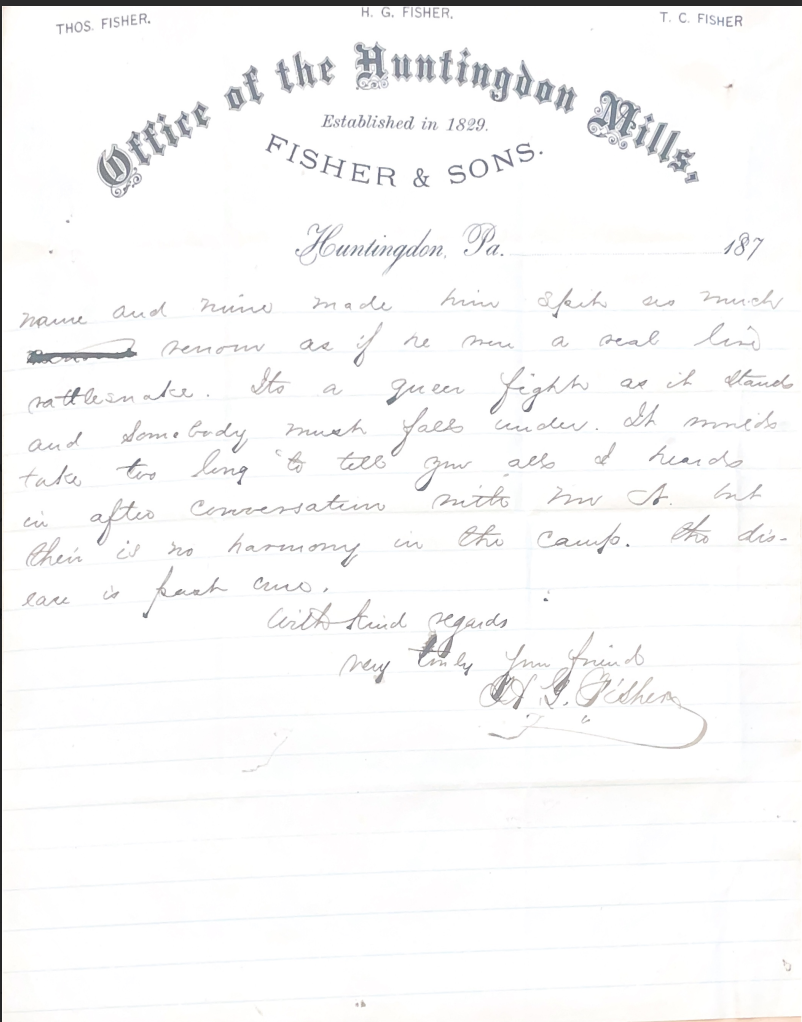 THOS. FISHER. H. G. FISHER. T. C. FISHER
Office of the Huntingdon Mills,
Established in 1829.
FISHER & SONS.
Huntingdon, Pa. 187
name and mine made him spit as much
venom as if he were a real live
rattlesnake. Its a queer fight as it stands
and somebody must fall under. It would
take too long to tell you all I heard
in after conversation with Mr A. but
their is no harmony in the camp. the dis-
ease is past cure.
With kind regards
very truly your friend
H. G. Fisher